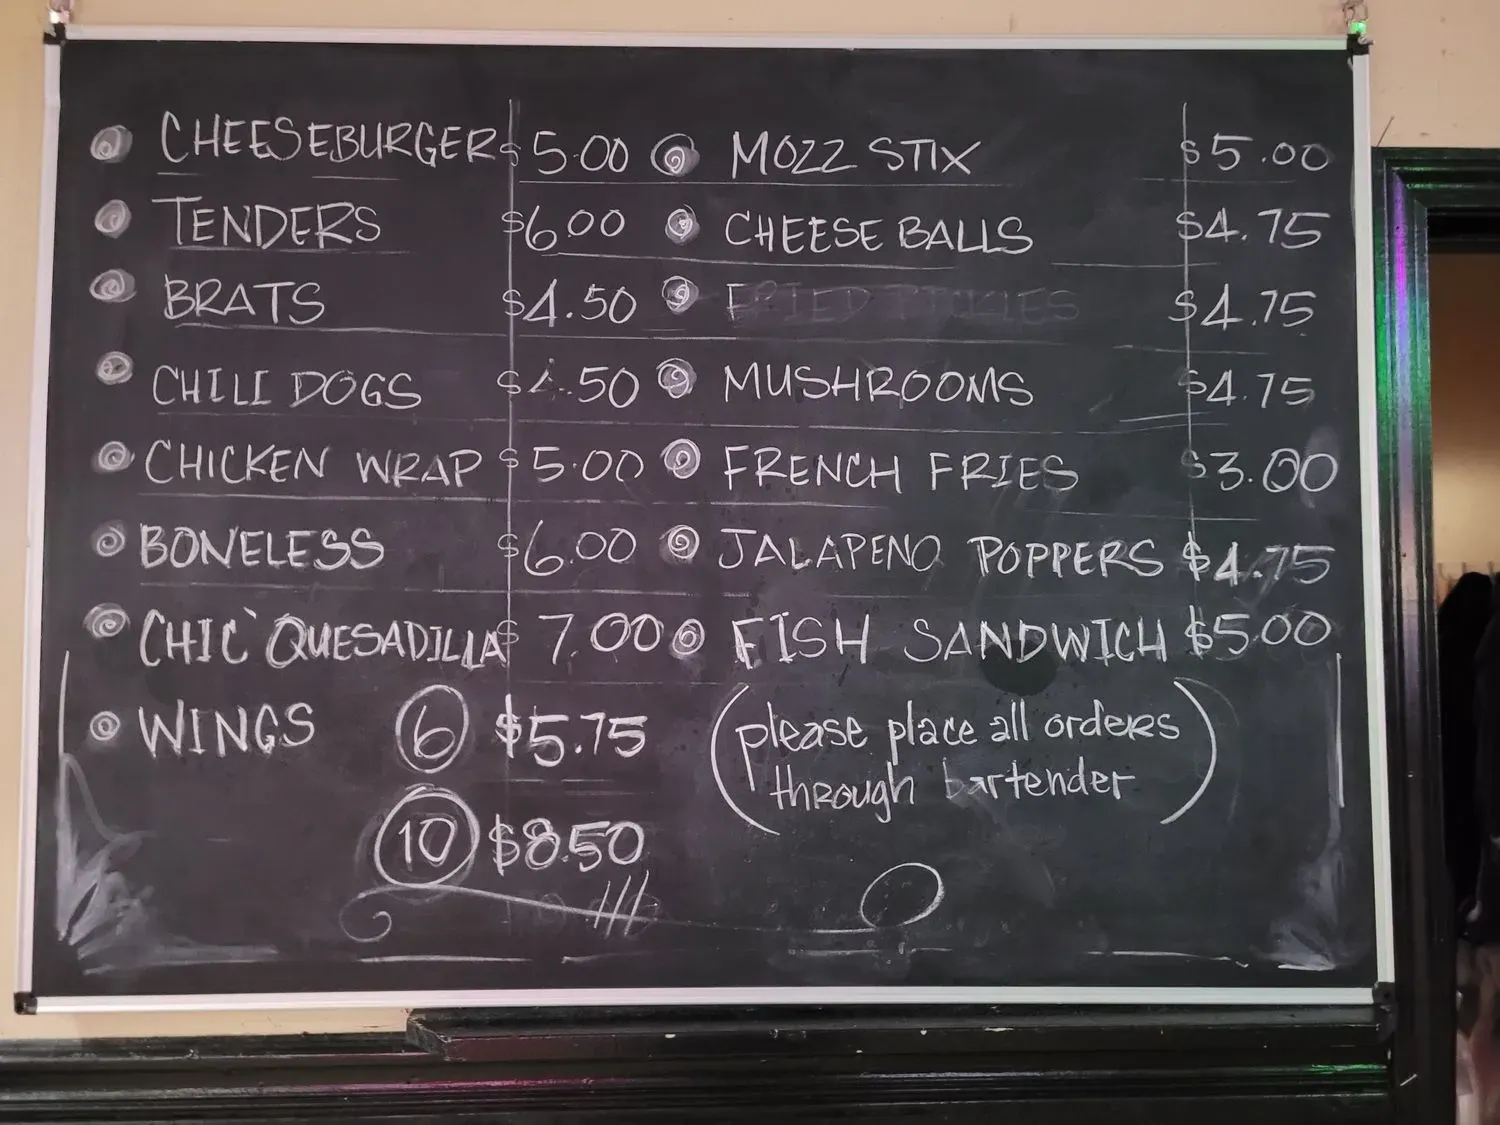 CHEESEBURGER $5.00
TENDERS $6.00
BRATS $4.50
CHILI DOGS $4.50
CHICKEN WRAP $5.00
BONELESS $6.00
CHIC' QUESADILLA $7.00
WINGS 6 $5.75
10 $8.50
MOZZ STIX $5.00
CHEESE BALLS $4.75
FRIED PICKLES $4.75
MUSHROOMS $4.75
FRENCH FRIES $3.00
JALAPENO POPPERS $4.75
FISH SANDWICH $5.00
(please place all orders
through bartender)